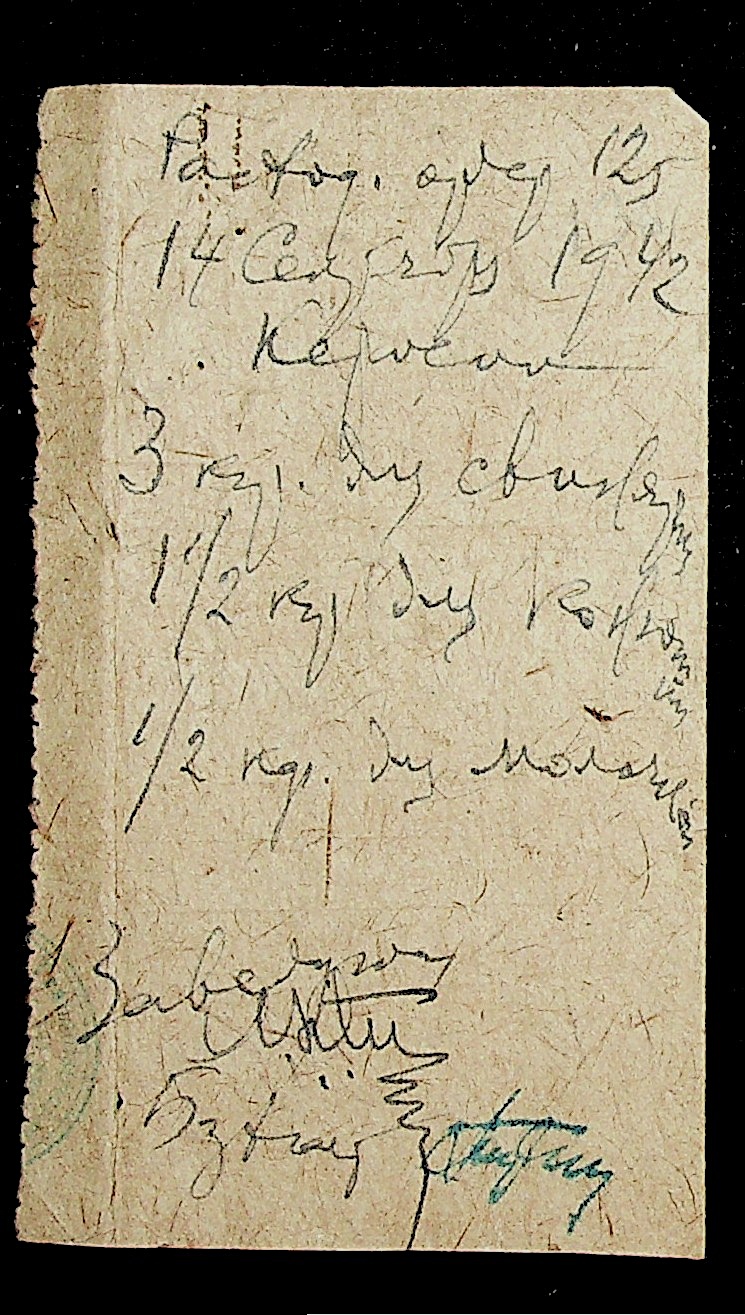 Расход. ордер 125
14 Сентябрь 1942
Керосин
3 кгр. для свинарн
1 1/2 кгр для конюшни
1/2 кгр. для молочн
Заведующ
Бухгалт